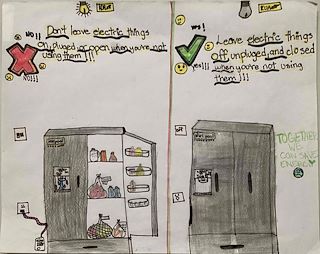 No!! Don't leave electric things
on, pluged or open when you're not
using them!!!
NO!!!
Yes!
Leave electric things
off unpluged, and closed
yes!!! when you're not using
them!!!
TOGETHER
WE
CAN SAVE
ENERGY